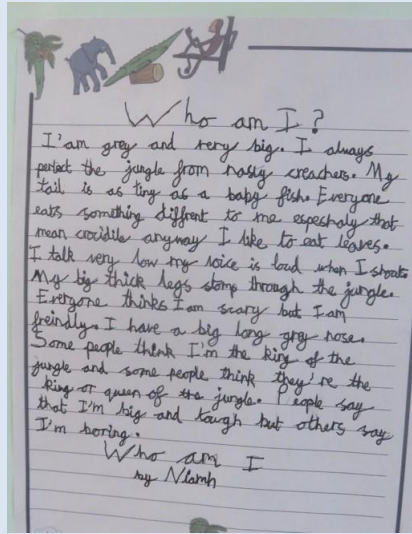 Who am I?
I'am grey and very big. I always
pertect the jungle from nasty creachers. My
tail is as ting as a baby fish. Everyone
eats something diffrent to me espeshaly that
mean crocidile anyway I like to eat leaves.
I talk very low my voice is loud when I shoute
My big thick legs stomp through the jungle.
Everyone thinks I am scary but I am
freindly. I have a big long grey nose.
Some people think I'm the king of the
jungle and some people think they're the
king or queen of the jungle. People say
that I'm big and tough but others say
I'm boring.
Who am I
by Niamh